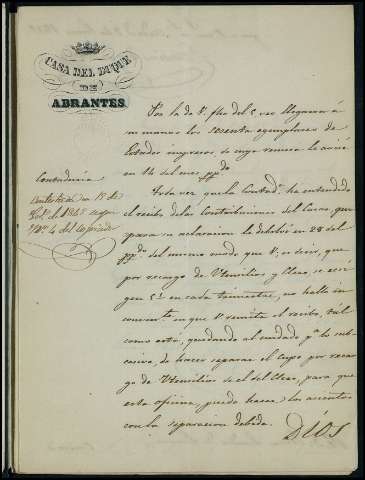 CASA DEL DUQUE
DE
ABRANTES.
Contaduría
Contestada en 15 de
Por la de V. fha del 5, veo llegaron á
mis manos los sesenta ejemplares de
Estados impresos de cuya remesa le avisé
en 14 del mes ppdo
Esta vez que la Contadª. ha entendido
el recibo de las Contribuciones del Cuzco, que
para su aclaracion la debolví en 28 del
ppdo del mismo modo que V. es decir, que
por recargo de Utensilios y Clero, se exi-
gen 5 en cada trimestre, no halla in-
conveniente en que V. remita el recibo, tal
como está, quedando al cuidado pª lo sub-
cesivo, de hacer separar el Cupo por recar
go de Utensilios de el del Clero, para que
esta oficina, pueda hacer los asientos
con la separacion debida.
DIOS